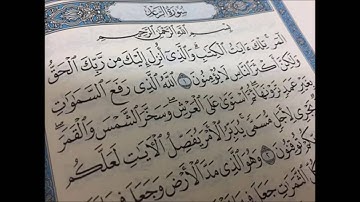 سورة الرعد
بسم الله الرحمن الرحيم
المر تلك ءايت الكتب والذى أنزل إليك من ربك الحق
ولكن أكثر الناس لا يؤمنون ١ الله الذى رفع السموت
بغير عمد ترونها ثم استوى على العرش وسخر الشمس والقمر
يجرى لأجل مسمى يدبر الأمر يفصل الأيت لعلكم
توقنون ٢ وهو الذى مد الأرض وجعل
كل الثمرت جعل